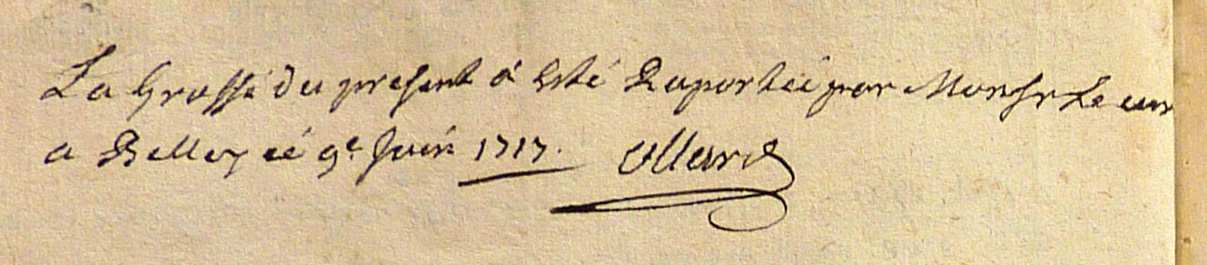 La Grosse du present a esté Raportée par Monsr Le cur
a Belley cé 9e Juin 1717. Allard